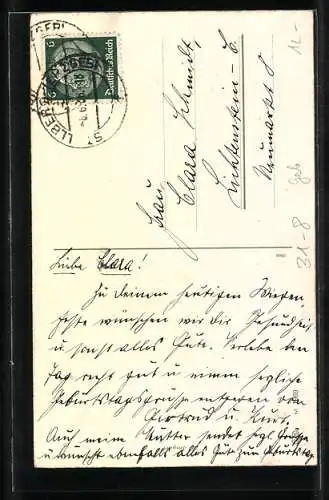 12-
Deutsches Reich
6
Frau
Clara Schmidt,
Lichtenstein-C.
Neumarkt 8
31-8
Liebe Clara!
Zu Deinem heutigen Wiegen-
feste wünschen wir dir Gesundheit
u. sonst alles Gute. Verlebe den
Tag recht gut u. nimm herzliche
Geburtstagsgrüsse entgegen von
Gertrud u. Kurt.
Auch meine Mutter sendet Grüsse
u. wünscht ebenfalls alles Gute zum Geburtstag